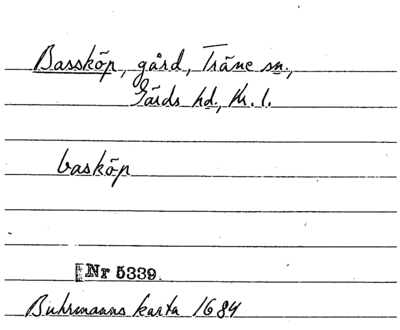 Bassköp, gård, Träne sn.,
Gärds hd., Kr. l.
basköp
Nr 5339
Buhrmanns karta 1684